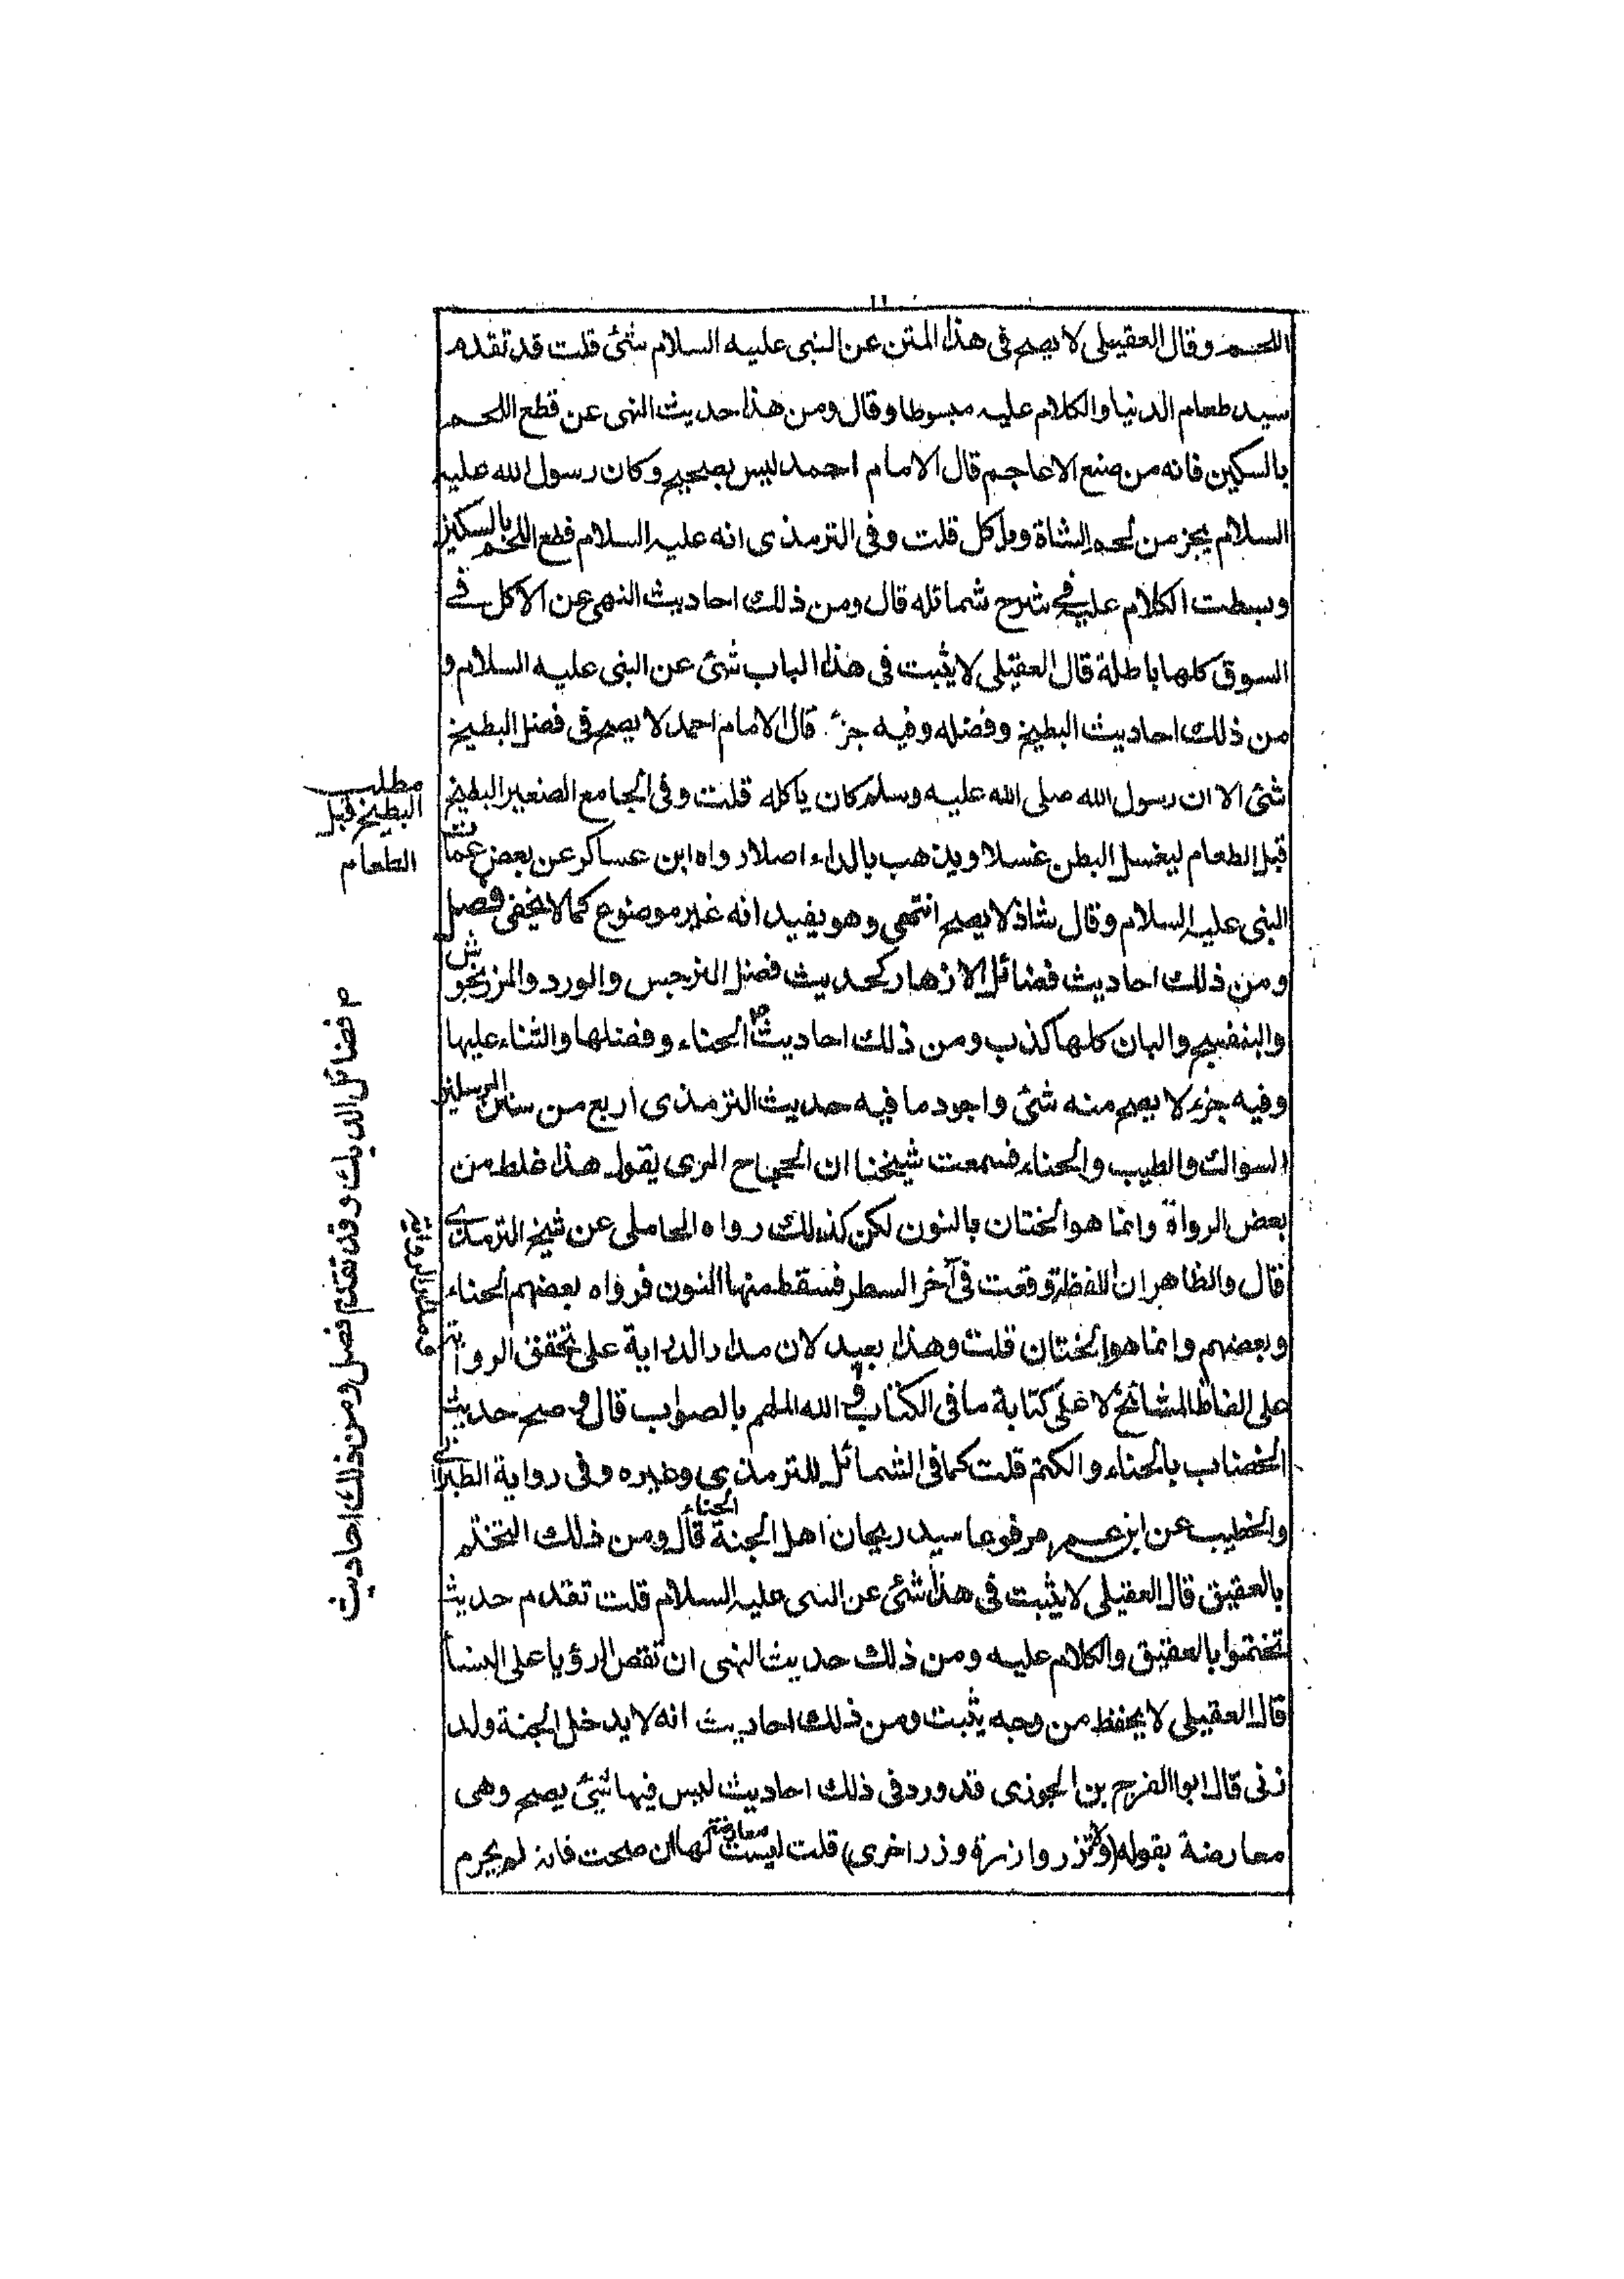 اللحم وقال العقيلى لا يصح فى هذا المتن عن النبى عليه السلام شئ قلت قد تقدم
سيد طعام الدنيا والكلام عليه مبسوطا وقال ومن هذا حديث النهى عن قطع اللحم
بالسكين فانه من صنع الاعاجم قال الامام احمد ليس بصحيح وكان رسول الله عليه
السلام يجز من لحم الشاة وياكل قلت وفى الترمذى انه عليه السلام قطع اللحم بالسكين
وبسطت الكلام عليه فى شرح شمائله قال ومن ذلك احاديث النهى عن الاكل فى
السوق كلها باطلة قال العقيلى لا يثبت فى هذا الباب شئ عن النبى عليه السلام و
من ذلك احاديث البطيخ وفضله وفيه جزء قال الامام احمد لا يصح فى فضل البطيخ
شئ الا ان رسول الله صلى الله عليه وسلم كان ياكله قلت وفى الجامع الصغير البطيخ
قبل الطعام ليغسل البطن غسلا ويذهب بالداء اصلا رواه ابن عساكر عن بعض عمات
النبى عليه السلام وقال شاذ لا يصح انتهى وهو يفيد انه غير موضوع كما لا يخفى فصل
ومن ذلك احاديث فضائل الازهار كحديث فضل النرجس والورد والمرزنجوش
والبنفسج والبان كلها كذب ومن ذلك احاديث الحناء وفضلها والثناء عليها
وفيه جزء لا يصح منه شئ واجود ما فيه حديث الترمذى اربع من سنن المرسلين
السواك والطيب والحناء فسمعت شيخنا ان الحجاج المزى يقول هذا غلط من
بعض الرواة وانما هو الختان بالنون لكن كذلك رواه المحاملى عن شيخ الترمذى
قال والظاهر ان اللفظة وقعت فى آخر السطر فسقط منها النون فرواه بعضهم الحناء
وبعضهم وانما هو الختان قلت وهذا بعيد لان مدار الدراية على تحقق الرواة
على الفاظ المشائخ لا على كتابة ما فى الكتاب والله الملهم بالصواب قال وصح حديث
الخضاب بالحناء والكتم قلت كما فى الشمائل للترمذى وغيره وفى رواية الطبرانى
والخطيب عن ابن عمر مرفوعا سيد ريحان اهل الجنة الحناء قال ومن ذلك التختم
بالعقيق قال العقيلى لا يثبت فى هذا شئ عن النبى عليه السلام قلت تقدم حديث
تختموا بالعقيق والكلام عليه ومن ذلك حديث النهى ان تقص الرؤيا على النسا
قال العقيلى لا يحفظ من وجه يثبت ومن ذلك احاديث انه لا يدخل الجنة ولد
زنى قال ابو الفرج بن الجوزى قد ورد فى ذلك احاديث ليس فيها شئ يصح وهى
معارضة بقوله (ولا تزر وازرة وزر اخرى) قلت ليست معارضة لها ان صحت فانه لم يحرم
مطلب
البطيخ قبل
الطعام
م فضائل الديك وقد تقدم فصل ومن ذلك احاديث